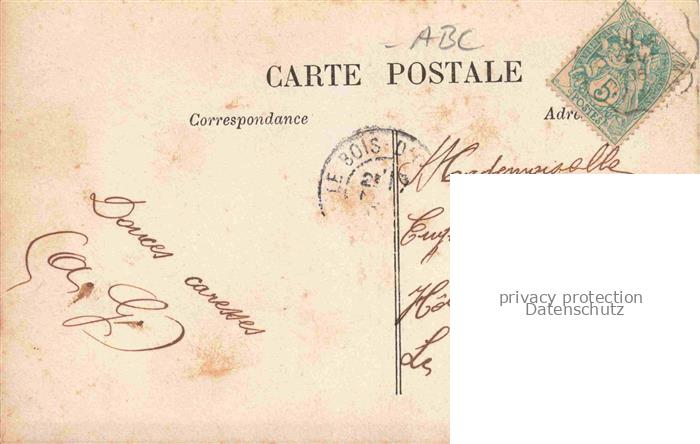 ABC
CARTE POSTALE
Correspondance
Adre
LE BOIS D'
Mademoiselle
Douces caresses
Hô
Le
privacy protection
Datenschutz
5
POSTES